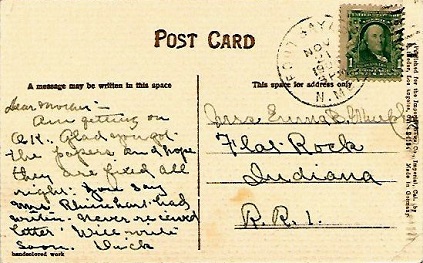 POST CARD
A message may be written in this space
This space for address only
NOV
N.M.
1
Dear Mother:-
Am getting on
O.K. Glad you got
the papers and hope
they are fixed all
right. You say
Mrs Rhinehart had
written. Never recieved
letter. Will write
soon. Dick
handcolored work
Mrs. Emma B. Murphy
Flat Rock
Indiana
R.R.1.
Made in Germany.